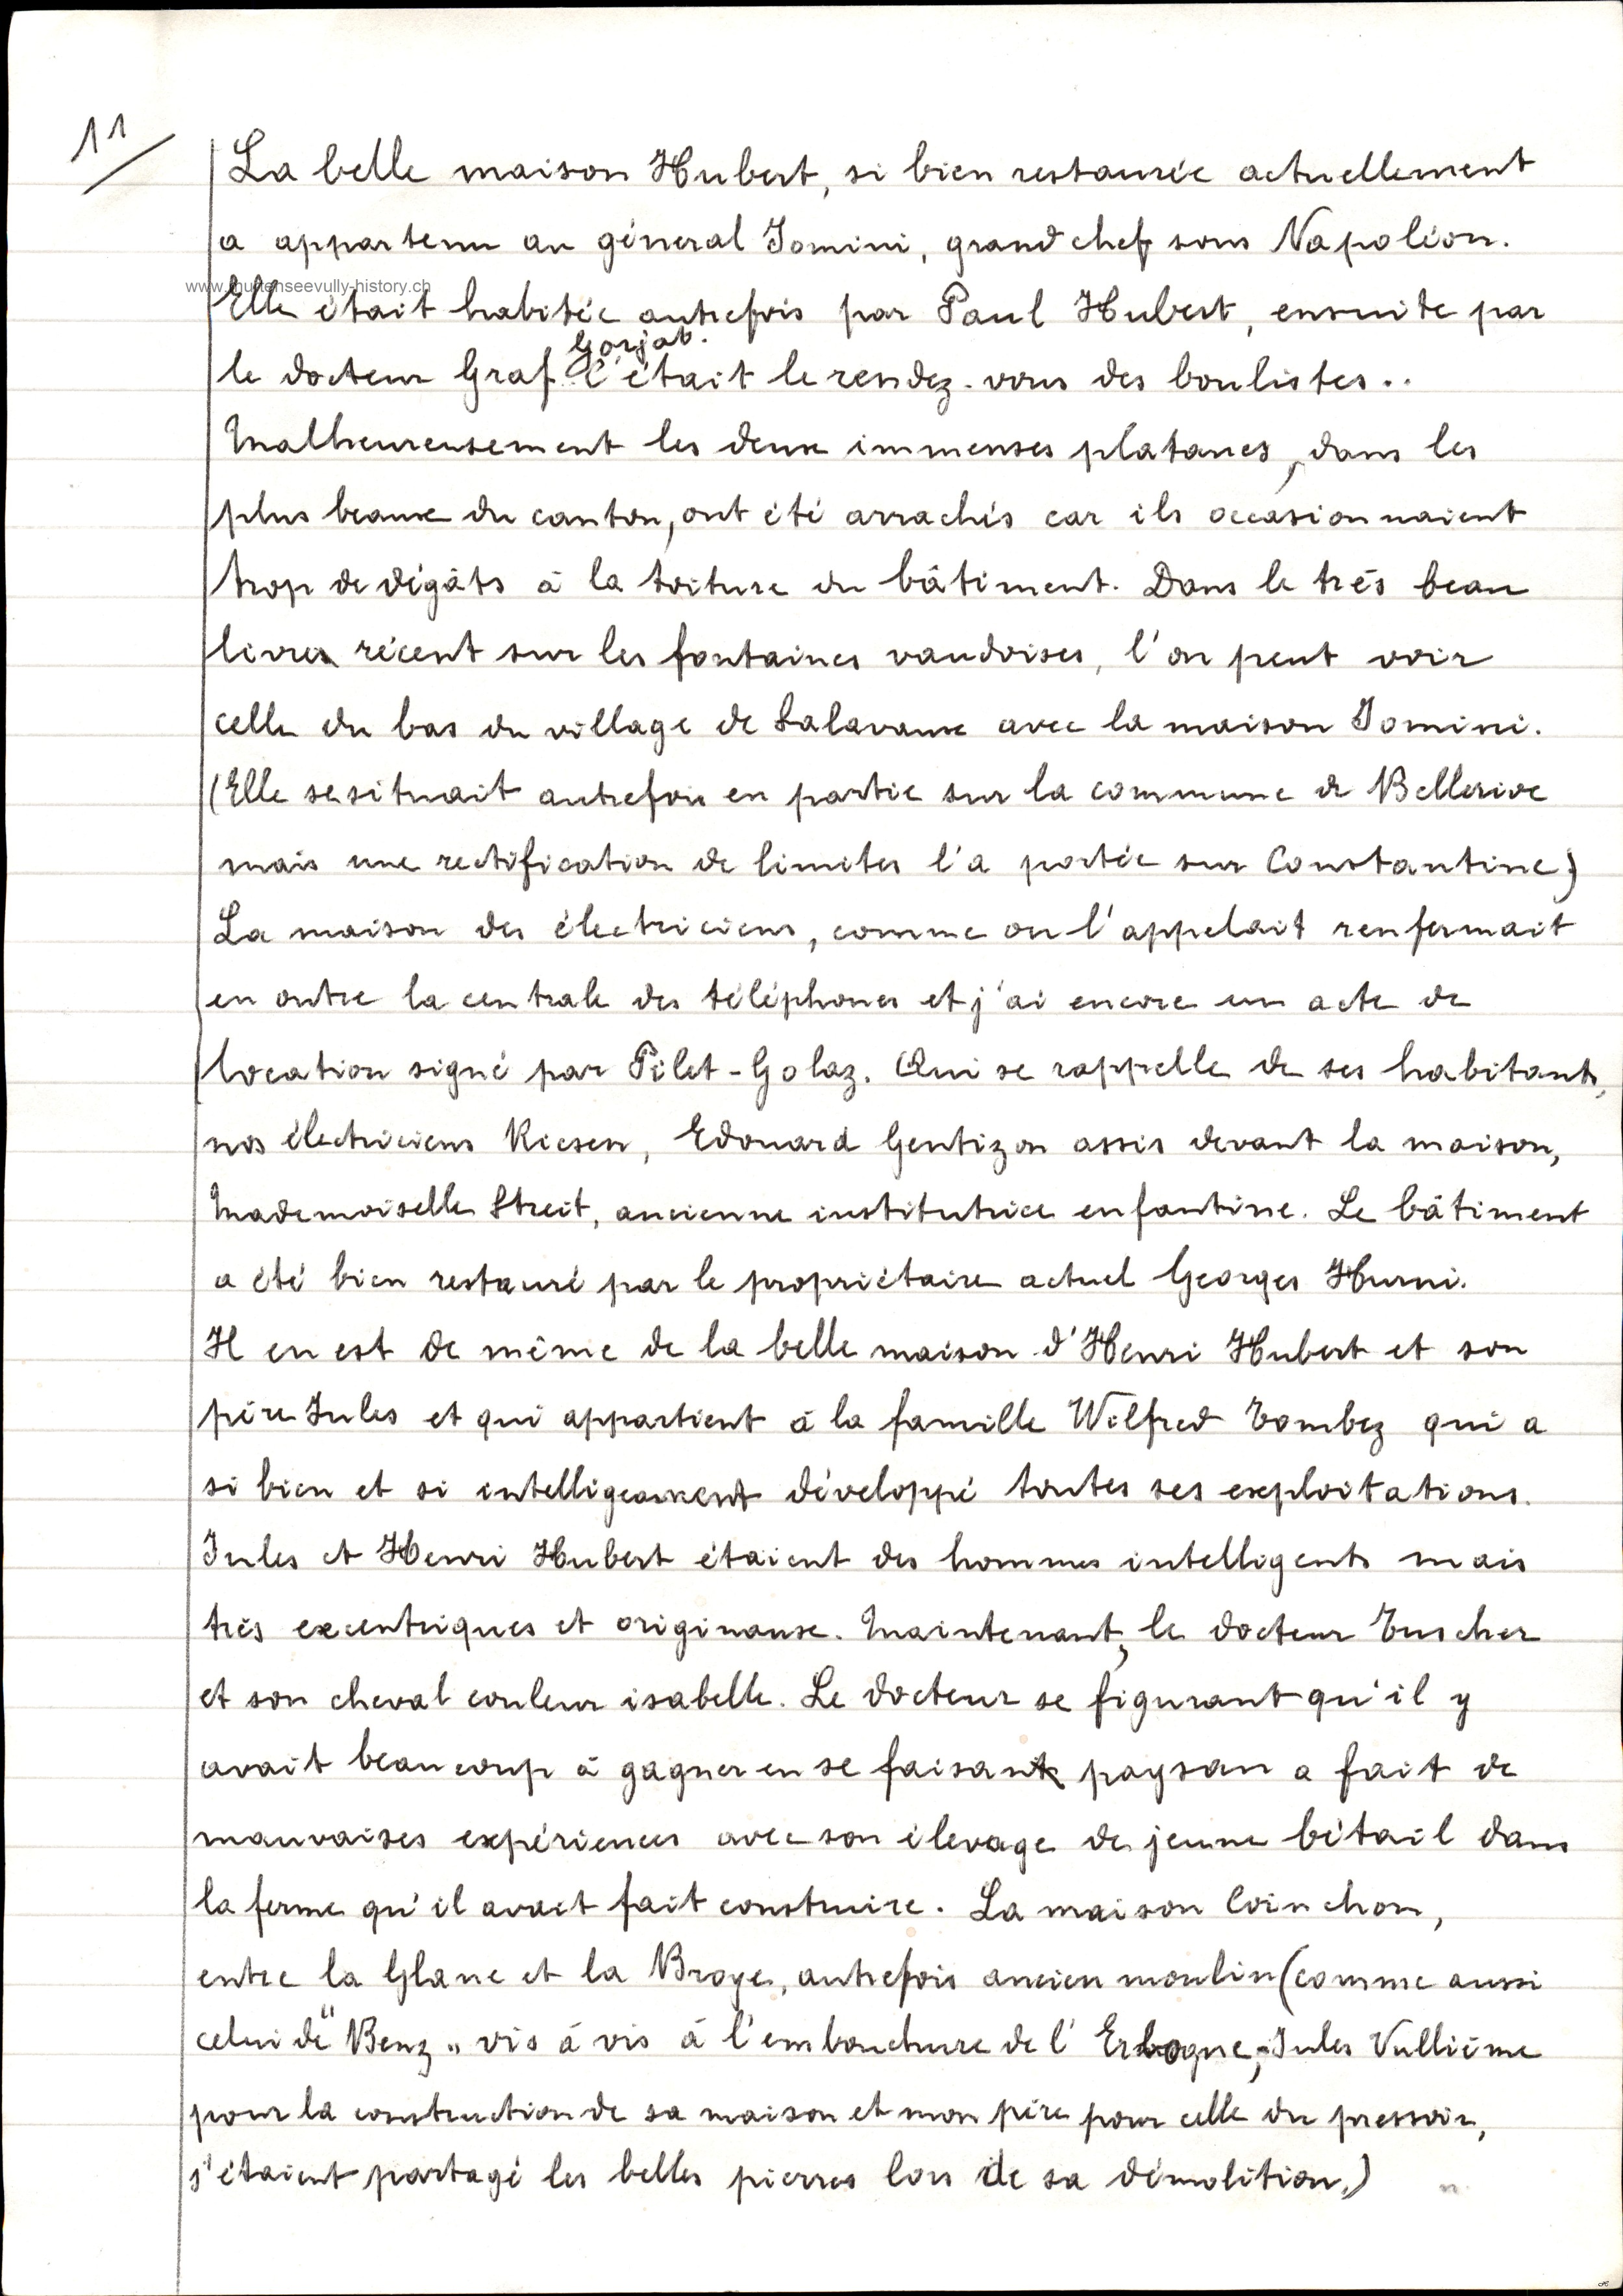 11
La belle maison Hubert, si bien restaurée actuellement
a appartenu au géneral Jomini, grand chef sous Napoléon.
www.murtenseevully-history.ch
Elle était habitée autrefois par Paul Hubert, ensuite par
Gorjat.
le docteur Graf. C'était le rendez-vous des boulistes..
Malheureusement les deux immenses platanes, dans les
plus beaux du canton, ont été arrachés car ils occasionnaient
trop de dégâts à la toiture du bâtiment. Dans le très beau
livre récent sur les fontaines vaudoises, l'on peut voir
celle du bas du village de Salavaux avec la maison Jomini.
(Elle se situait autrefois en partie sur la commune de Bellerive
mais une rectification de limites l'a portée sur Constantine)
La maison des électriciens, comme on l'appelait renfermait
en outre la centrale des téléphones et j'ai encore un acte de
location signé par Pilet-Golaz. Qui se rappelle de ses habitants,
nos électriciens Riesen, Edouard Gentizon assis devant la maison,
Mademoiselle Streit, ancienne institutrice enfantine. Le bâtiment
a été bien restauré par le propriétaire actuel Georges Hurni.
Il en est de même de la belle maison d'Henri Hubert et son
père Jules et qui appartient à la famille Wilfred Tombez qui a
si bien et si intelligeament développé toutes ses exploitations.
Jules et Henri Hubert étaient des hommes intelligents mais
très excentriques et originaux. Maintenant, le docteur Tuscher
et son cheval couleur isabelle. Le docteur se figurant qu'il y
avait beaucoup à gagner en se faisant paysan a fait de
mauvaises expériences avec son élevage de jeune bétail dans
la ferme qu'il avait fait construire. La maison Coinchon,
entre la Glane et la Broye, autrefois ancien moulin (comme aussi
celui de "Benz" vis à vis à l'embouchure de l'Erbogne, Jules Vullième
pour la construction de sa maison et mon père pour celle du pressoir,
s'étaient partagé les belles pierres lors de sa démolition.)